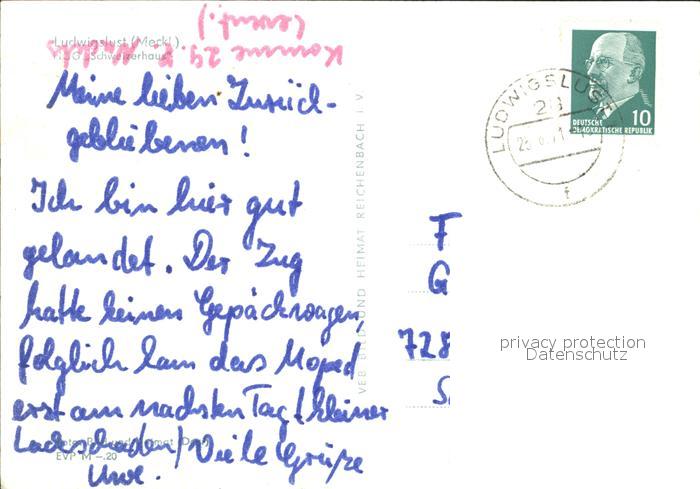 Ludwigslust (Meckl.)
HOG „Schweizerhaus"
Komme 29.
(event.)
Meine lieben Zurück-
gebliebenen!
Ich bin hier gut
gelandet. Der Zug
hatte keinen Gepäckwagen,
folglich kam das Moped
erst am nächsten Tag (kleiner
Lackschaden) Viele Grüße
Uwe.
EVP M -.20
VEB BILD UND HEIMAT REICHENBACH I. V.
LUDWIGSLUST
DEUTSCHE
DEMOKRATISCHE REPUBLIK
10
F
G
728
S
privacy protection
Datenschutz